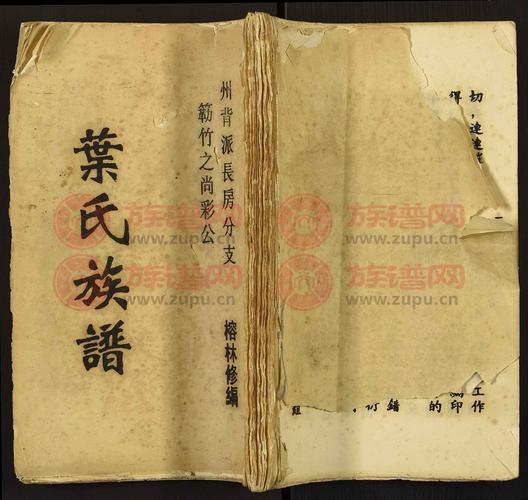 州背派長房分支
簕竹之尚彩公
榕林修編
葉氏族譜
切，連
得
工作
的印
錯
族谱网
www.zupu.cn
族谱网
www.zupu.cn
族谱网
www.zupu.cn
族谱网
www.zupu.cn